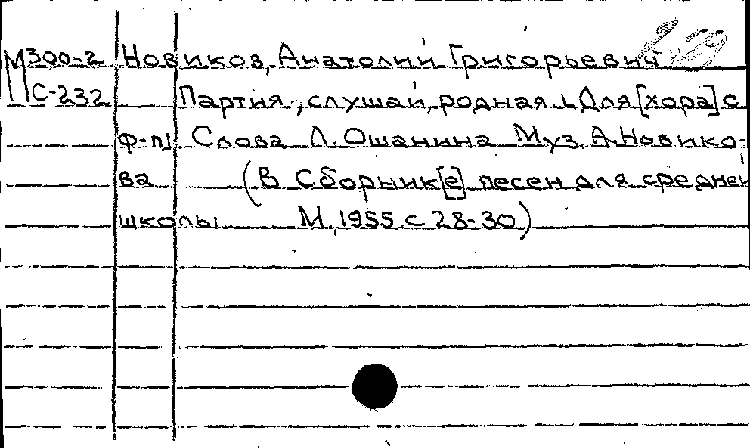 М300-2 Новиков, Анатолий Григорьевич
С-232 Партия, слушай, родная. Для [хора] с
ф-п. Слова Л. Ошанина Муз. А. Новико-
ва (В Сборник[е] песен для средней
школы М., 1955. с 28-30)